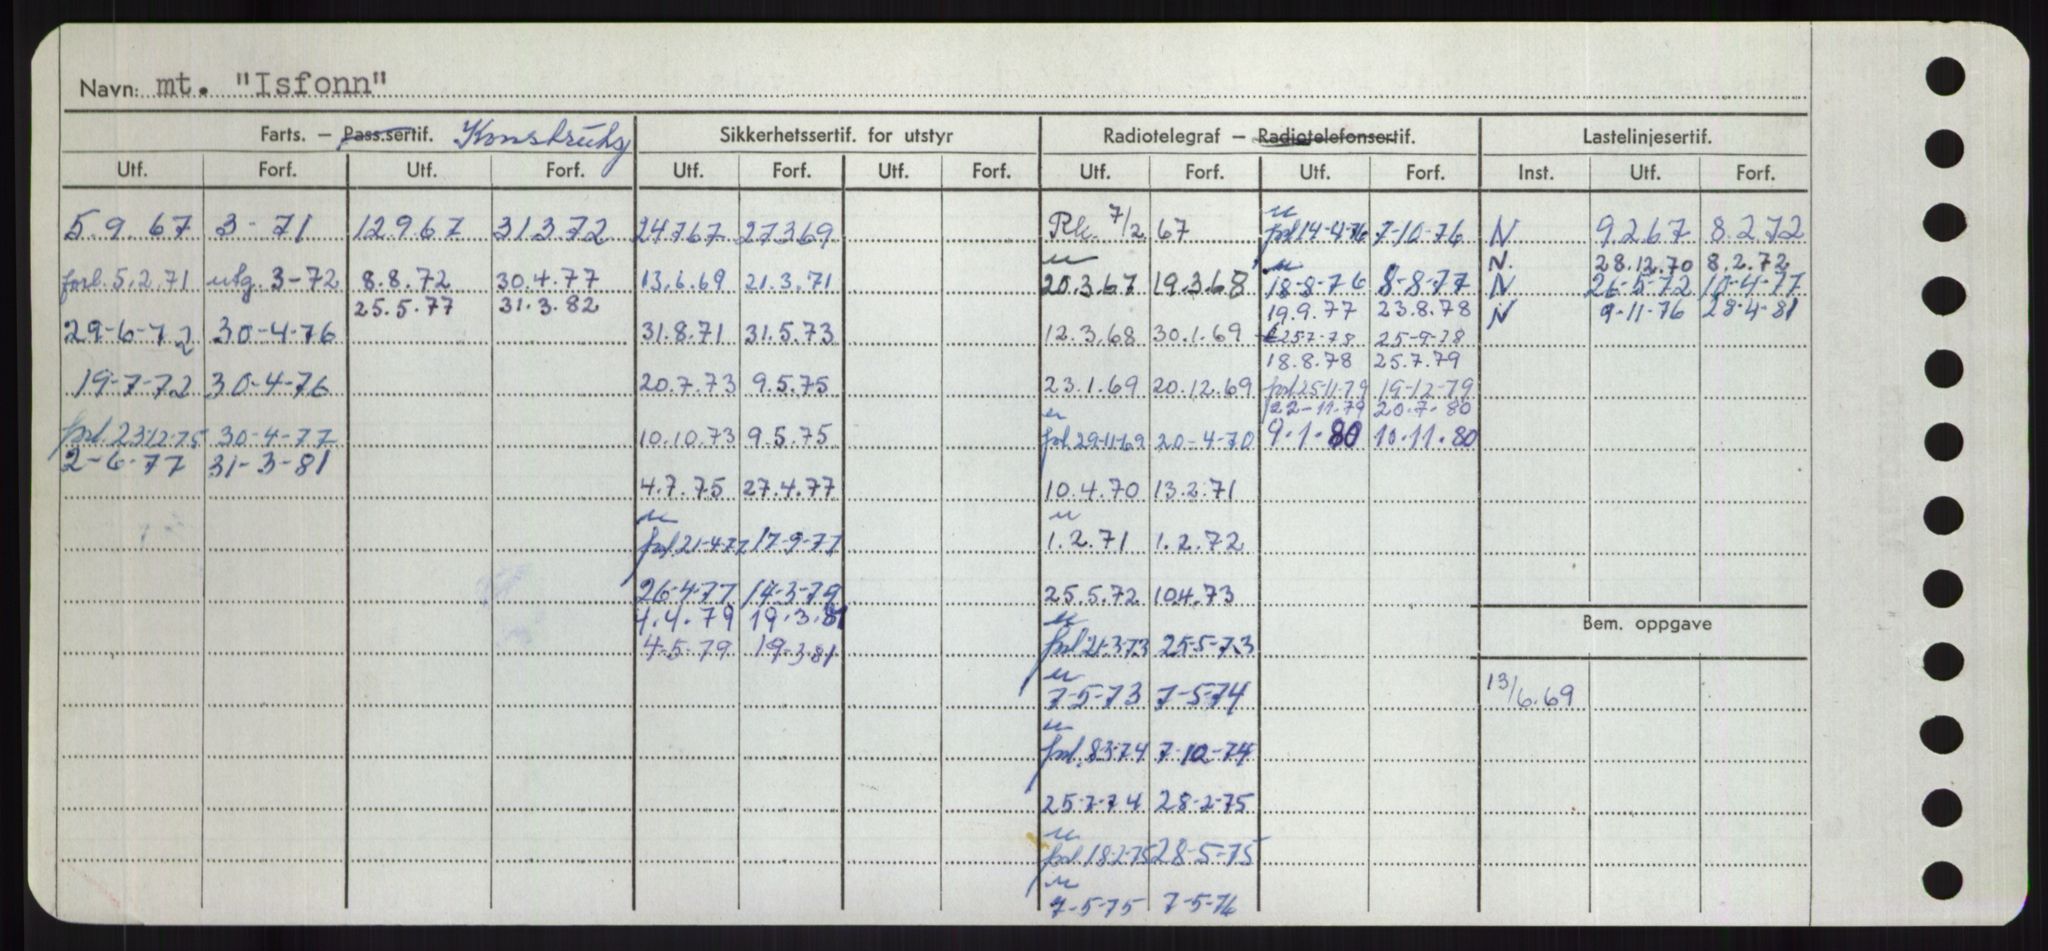 Navn: mt. "Isfonn"
Farts. – Pass.sertif. Konstruksj Sikkerhetssertif. for utstyr Radiotelegraf – Radiotelefonsertif. Lastelinjesertif.
Utf. Forf. Utf. Forf. Utf. Forf. Utf. Forf. Utf. Forf. Utf. Forf. Inst. Utf. Forf.
5.9.67 3-71 12967 31372 24767 27369 Rk. 7/2 67 forl 14-4-76 7-10-76 N 9.2.67 8.2.72
N. 28.12.70 8.2.72
forl. 5.2.71 utg. 3-72 8.8.72 30.4.77 13.6.69 21.3.71 20.3.67 19.3.68 18-8-76 8-8-77 N 26-5-72 10-4-77
25.5.77 31.3.82 19.9.77 23.8.78 N 9-11-76 28-4-81
29-6-72 30-4-76 31.8.71 31.5.73 12.3.68 30.1.69 25-7-78 25-9-78
18.8.78 25.7.79
19-7-72 30-4-76 20.7.73 9.5.75 23.1.69 20.12.69 forl 25-11-79 19-12-79
22-11.79 20.7.80
forl. 23-12-75 30-4-77 10.10.73 9.5.75 forl 29-11-69 20-4-70 9.1.80 10.11.80
2-6-77 31-3-81
4.7.75 27.4.77 10.4.70 13.2.71
forl 21-4-77 17-9-77 1.2.71 1.2.72
26-4-77 19-3-79 25.5.72 10.4.73
4.4.79 19.3.81
Bem. oppgave
4-5-79 19-3.81 forl 21-3-73 25-5-73
7-5-73 7-5-74 13/6.69
forl. 8-3-74 7-10-74
25-7-74 28-2-75
forl. 18-2-75 28-5-75
7-5-75 7-5-76